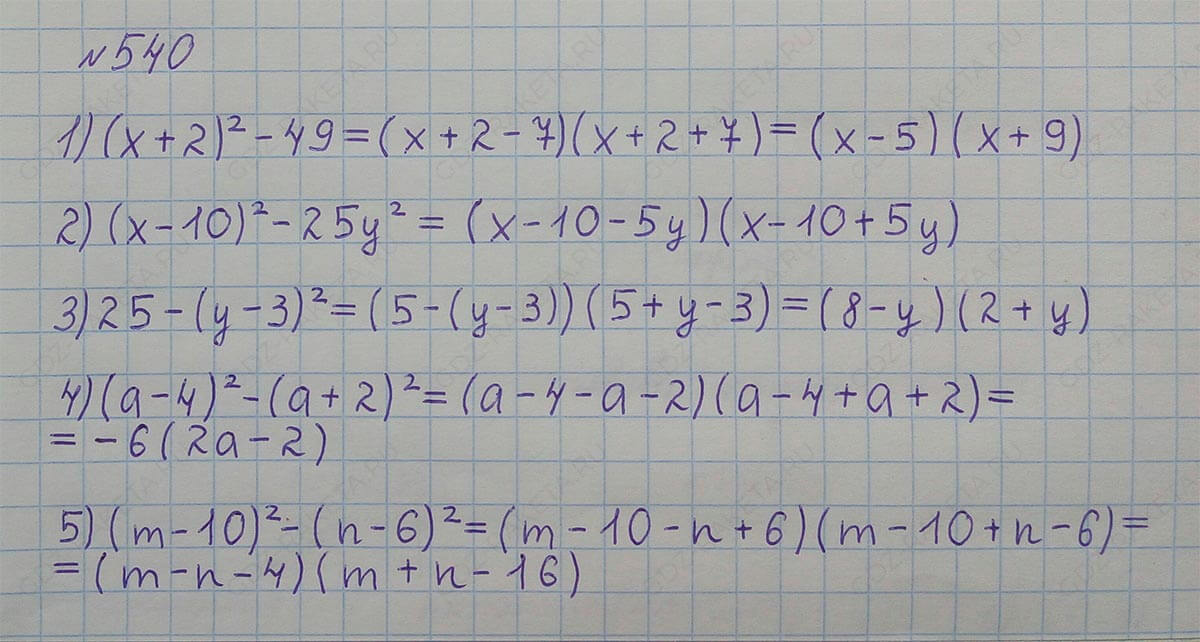 №540
1) (x+2)² - 49 = (x+2-7)(x+2+7) = (x-5)(x+9)
2) (x-10)² - 25y² = (x-10-5y)(x-10+5y)
3) 25-(y-3)² = (5-(y-3))(5+y-3) = (8-y)(2+y)
4) (a-4)² - (a+2)² = (a-4-a-2)(a-4+a+2) =
= -6(2a-2)
5) (m-10)² - (n-6)² = (m-10-n+6)(m-10+n-6) =
= (m-n-4)(m+n-16)